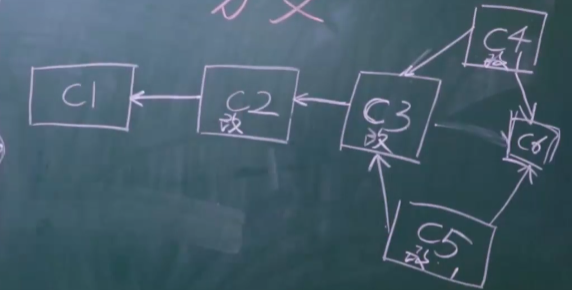 C1
C2
改
C3
改
C4
改
C6
C5
改